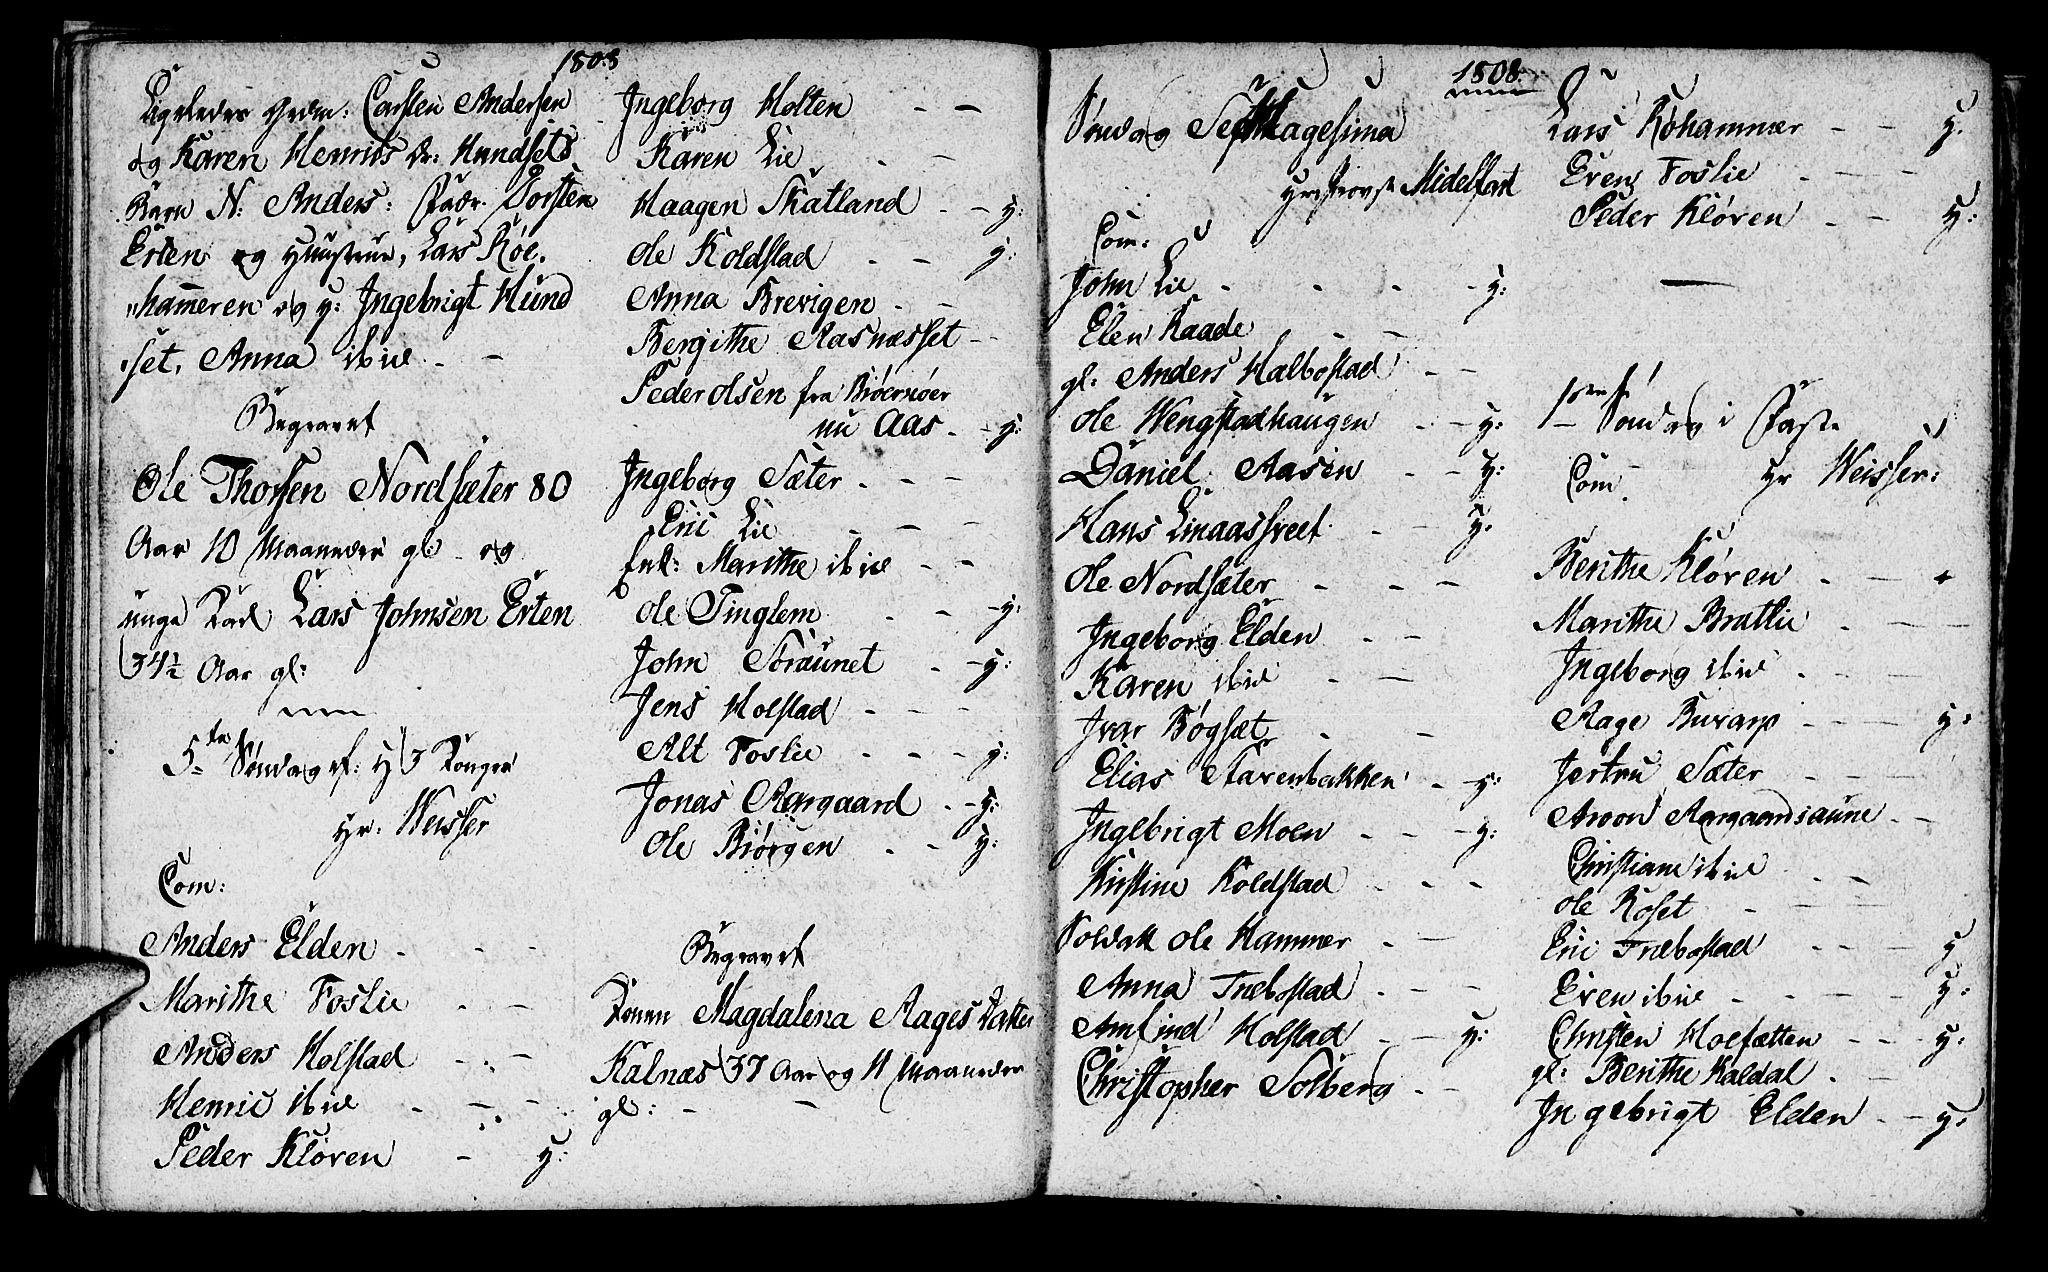 1808
Ligeledes Gvdm: Carsten Andersen
og Karen Henrics Dr: Hundsets
Barn N: Anders: Fadr. Torsten
Erten og Hustrue, Lars Røe-
hameren og y: Ingebrigt Hund
set, Anna ibid -
Begravet
Ole Thorsen Nordsæter 80
Aar 10 Maaneder gl: og
unge Karl Lars Johnsen Erten
34½ Aar gl:
5te Søndag ef: H 3 Konger
Hr: Weisser
Com:
Anders Elden - - -
Marithe Foslie - -
Anders Holstad - -
Henric ibid - - -
Peder Kløren - y:
Ingeborg Holten - -
Karen Lie - -
Haagen Skatland - - y:
Ole Koldstad - - y:
Anna Brevigen - -
Bergithe Aasnæsset - -
Peder Olsen fra Biørnøer
nu Aas - - y:
Ingeborg Sæter - - -
Eric Lie - - -
Enk: Marithe ibid - -
Ole Tinglem - - y:
John Straunet - - y:
Jens Holstad - - -
Alt Foslie - - - y:
Jonas Aargaard - - y:
Ole Biørgen - - y:
Begravet
Konen Magdalena Aages Datter
Kalnæs 37 Aar og 11 Maaneder
gl: - -
1808.
Søndag Sexagesima
Hr Provst Midelfart
Com:
John Lie - - - - y:
Elen Kaade - -
gl: Anders Halbostad - -
Ole Wengstadhaugen - - y:
Daniel Aasen - - y:
Hans Linaasfreet - - y:
Ole Nordsæter - - -
Ingeborg Elden - -
Karen ibid - -
Ivar Bøgsæt - -
Elias Starenbakken - y:
Ingebrigt Moen - - - y:
Kirstine Koldstad - - -
Soldatt Ole Hammer - -
Anna Træbostad - - -
Amfind Holstad - - y:
Christopher Solberg - -
Lars Røhammer - - y:
Eren Foslie - - -
Peder Kløren - - y:
1ste Søndag i Faste
Com Hr Weisser:
Berithe Kløren - - +
Marithe Bratlie - - -
Ingeborg ibid - - -
Aage Burarp - - - y:
Jertru Sæter - - -
Aroon Aargaardsaune - -
Christiane ibid - -
Ole Roset - - -
Eric Træbostad - - - y
Eren ibid - - - - y:
Christen Moesætten - - - y:
gl: Berithe Kaldal - -
Ingebrigt Elden - - y: